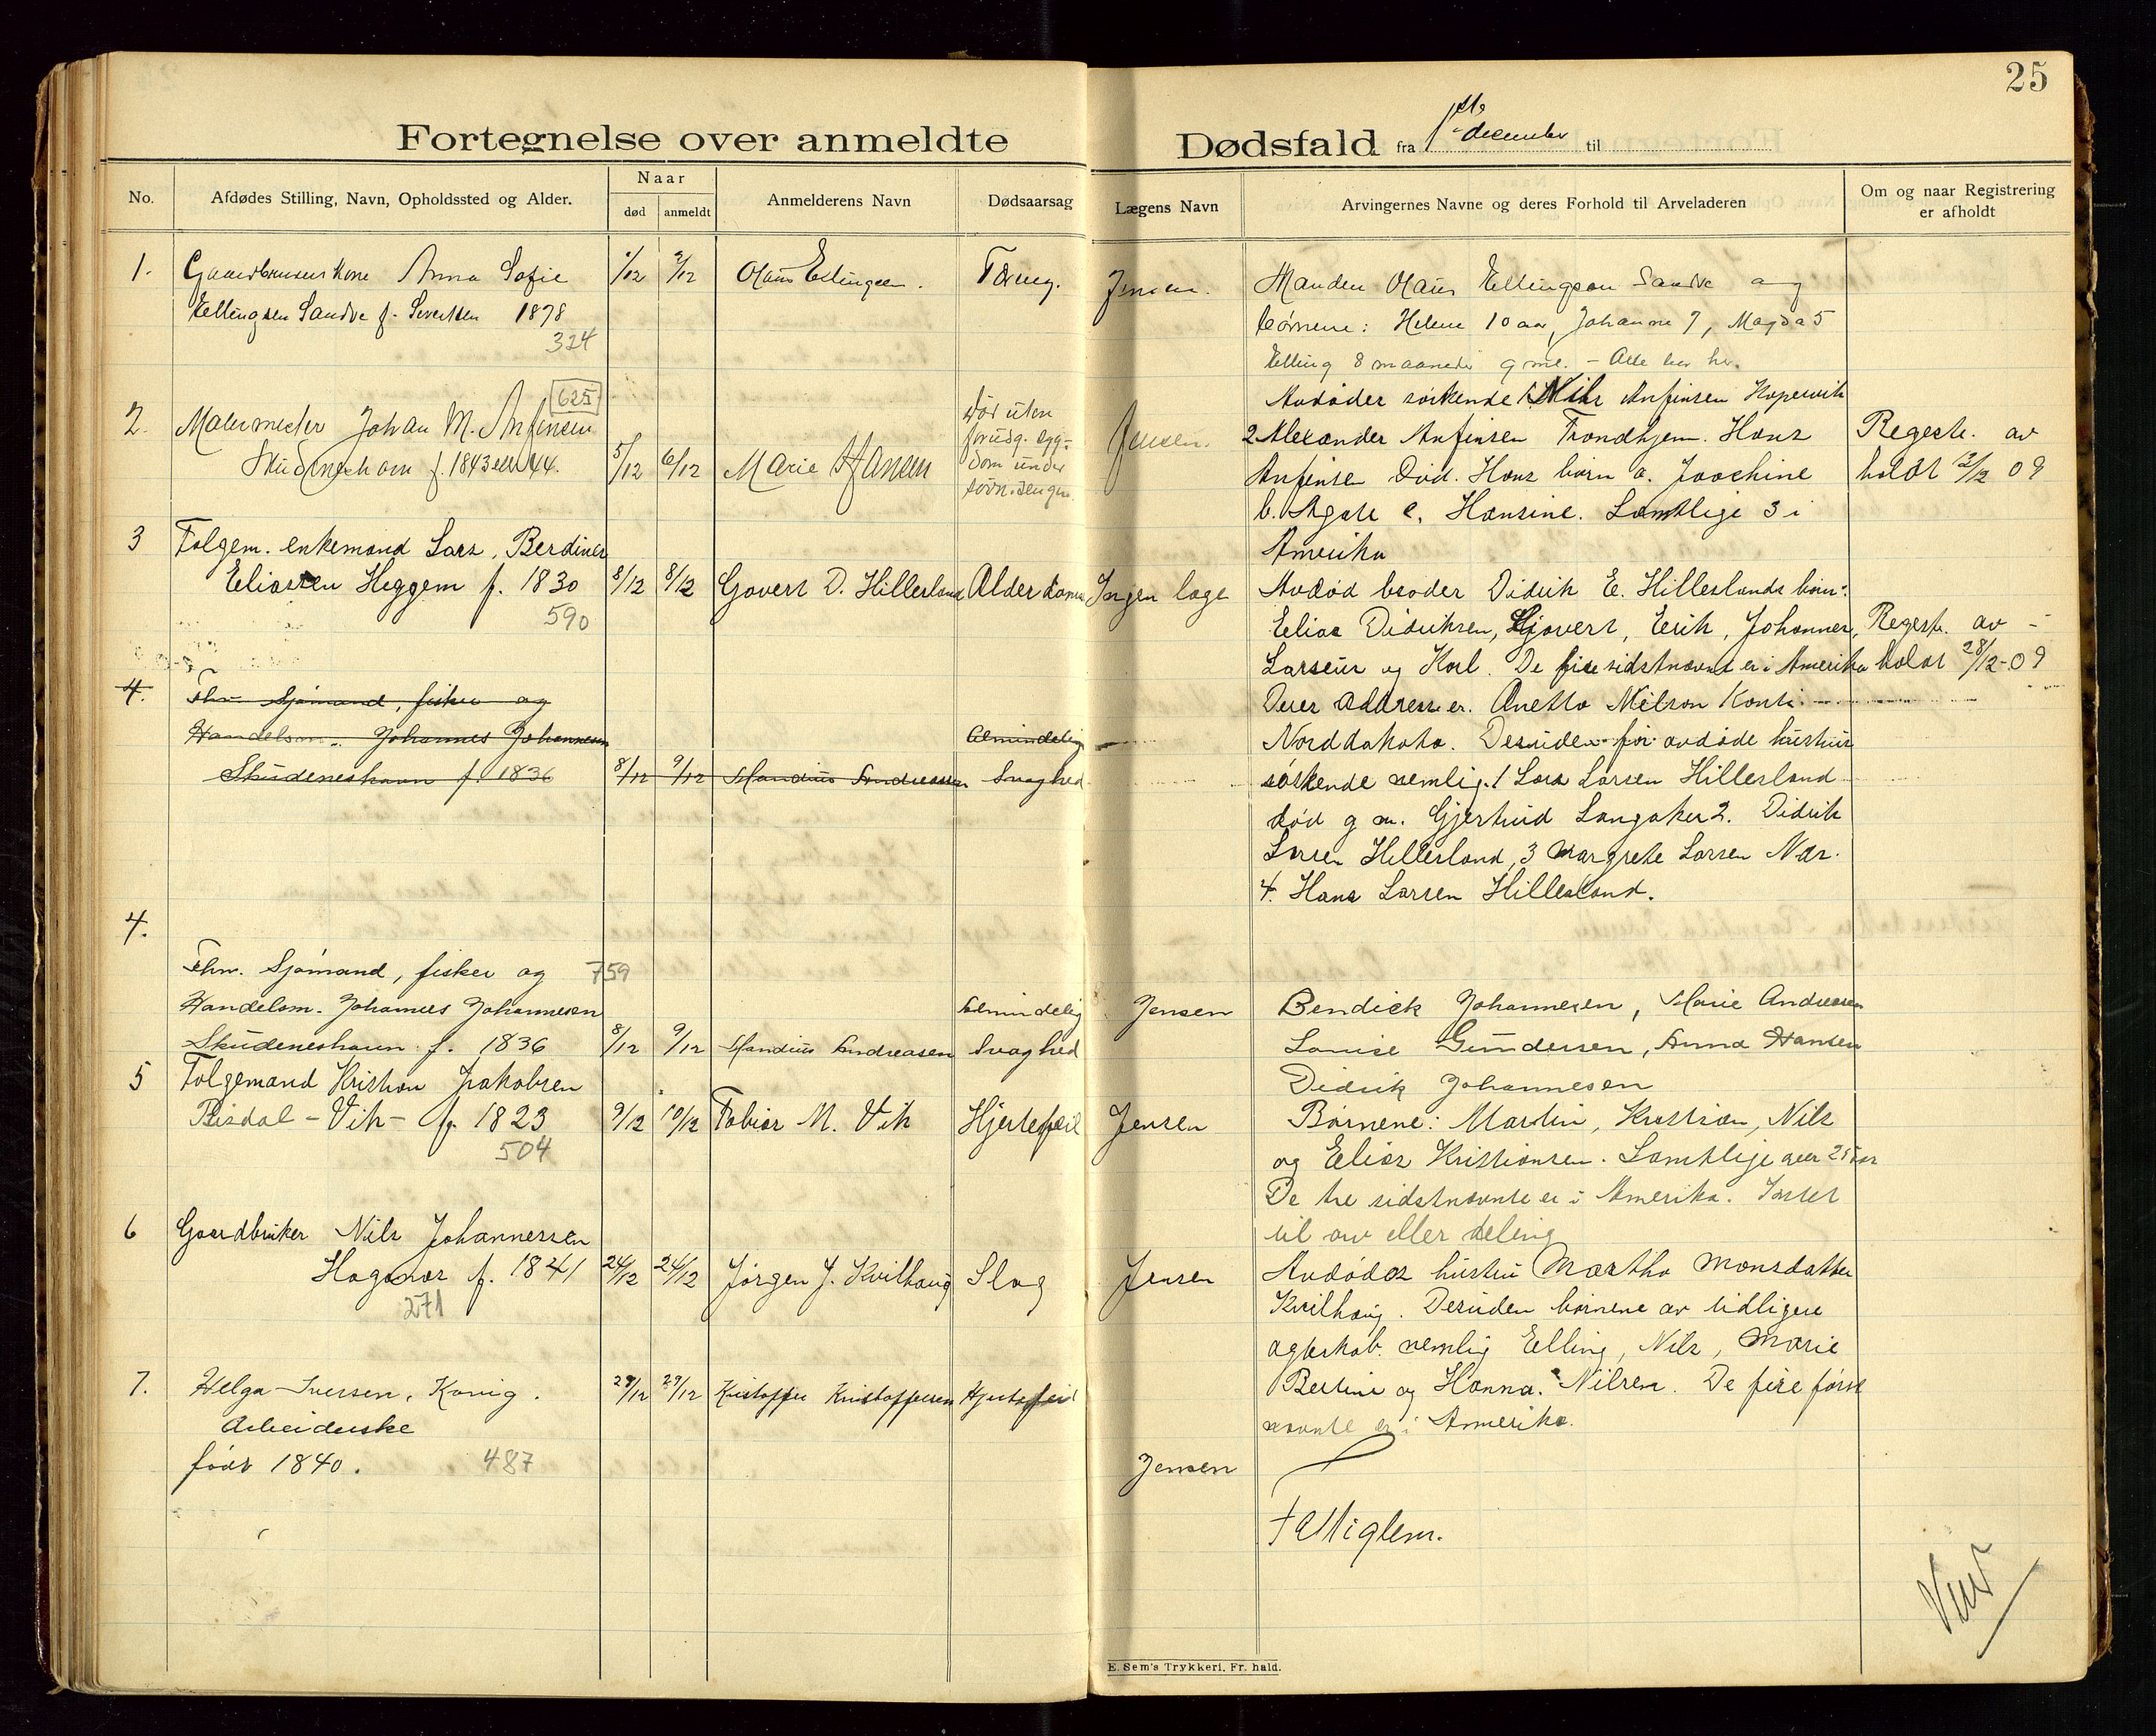 25
Fortegnelse over anmeldte Dødsfald fra 1ste december til
No.
Afdødes Stilling, Navn, Opholdssted og Alder.
Naar
død
anmeldt
Anmelderens Navn
Dødsaarsag
Lægens Navn
Arvingernes Navne og deres Forhold til Arveladeren
Om og naar Registrering
er afholdt
1. Gaardbrukers kone Anna Sofie
Ellingsen Sandve f. Severtsen 1878
324
1/12 2/12 Olaus Ellingsen. Tæring. Jensen.
Manden Olaus Ellingsen Sandve og
børnene: Helene 10 aar, Johanne 7, Magda 5
Elling 8 maaneder g ml. - Alle her hr.
625
2. Malermester Johan M. Anfinsen
Skudeneshavn f. 1843 eller 44.
5/12 6/12 Marie Hansen
død uten
forudg. syg-
dom under
Jensen.
Avdødes søskende 1 Nils Anfinsen Kopervik
2 Alexander Anfinsen Trondhjem. Hans
Anfinsen død. Hans børn a. Joachine
b. Agate c. Hansine. Samtlige 3 i
Amerika
Regestr. av
holdt 13/12 09
3 Folgem. enkemand Lars, Berdines
Eliassen Heggem f. 1830
590
8/12 8/12 Govert D. Hillesland Alderdoms Ingen læge
Avdød broder Didrik E. Hilleslands børn:
Elias Didriksen, Govert, Erik, Johannes,
Larseus og Karl. De fire sidstnævnte er i Amerika
Deres addresse er. Anetta Nelson Konti.
Norddakota. Desuden for avdøde hustrus
søskende nemlig. 1 Lars Larsen Hillesland
død g m. Gjertrud Langaker 2. Didrik
Larsen Hillesland, 3 Margrete Larsen Nær.
4. Hans Larsen Hillesland.
Regestr. av -
holdt 28/12-09
4. Fhv. Sjømand, fisker og
Handelsm. Johannes Johannesen
Skudeneshavn f. 1836
8/12 9/12 Mandius Andreassen
Almindelig
Svaghed
4.
Fhv. Sjømand, fisker og 759
Handelsm. Johannes Johannesen
Skudeneshavn f. 1836
8/12 9/12 Mandius Andreasen
Almindelig
Svaghed
Jensen
Bendick Johannesen, Marie Andreasen
Louise Gundersen, Anna Hansen
Didrik Johannesen
5 Folgemand Kristian Jakobsen
Risdal - Vik - f. 1823
504
9/12 10/12 Tobias M. Vik Hjertefeil Jensen
Børnene: Martin, Kristian, Nils
og Elias Kristiansen. Samtlige over 25 aar
De tre sidstnævnte er i Amerika. Intet
til arv eller deling
6 Gaardbruker Nils Johannessen
Haganes f. 1841
271
24/12 24/12 Jørgen J. Kvilhaug Slag Jensen
Avdødes hustru Martha Monsdatter
Kvilhaug. Desuden børnene av tidligere
egteskab. nemlig Elling, Nils, Marie
Bertine og Hanna. Nilsen. De fire først
nævnte er i Amerika.
7. Helga Iversen, Kønig.
Arbeiderske
født 1840. 487
29/12 29/12 Kristoffer Kristoffersen Hjertefeil
Jensen
Fattiglem.
E. Sem's Trykkeri, Fr. hald.